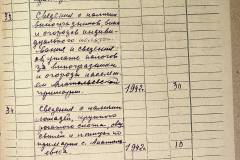 33 Сведения о наличии
виноградников, вина
и огородов индиви-
дуального пользо-
вания и сведения
об уплате налогов
за виноградники
и огороды населе-
нием
примарии 1942г. 30
34 Сведения о наличии
лошадей, крупного
рогатого скота, ове-
свиней и птицы по
примарии с. 1942г. 10